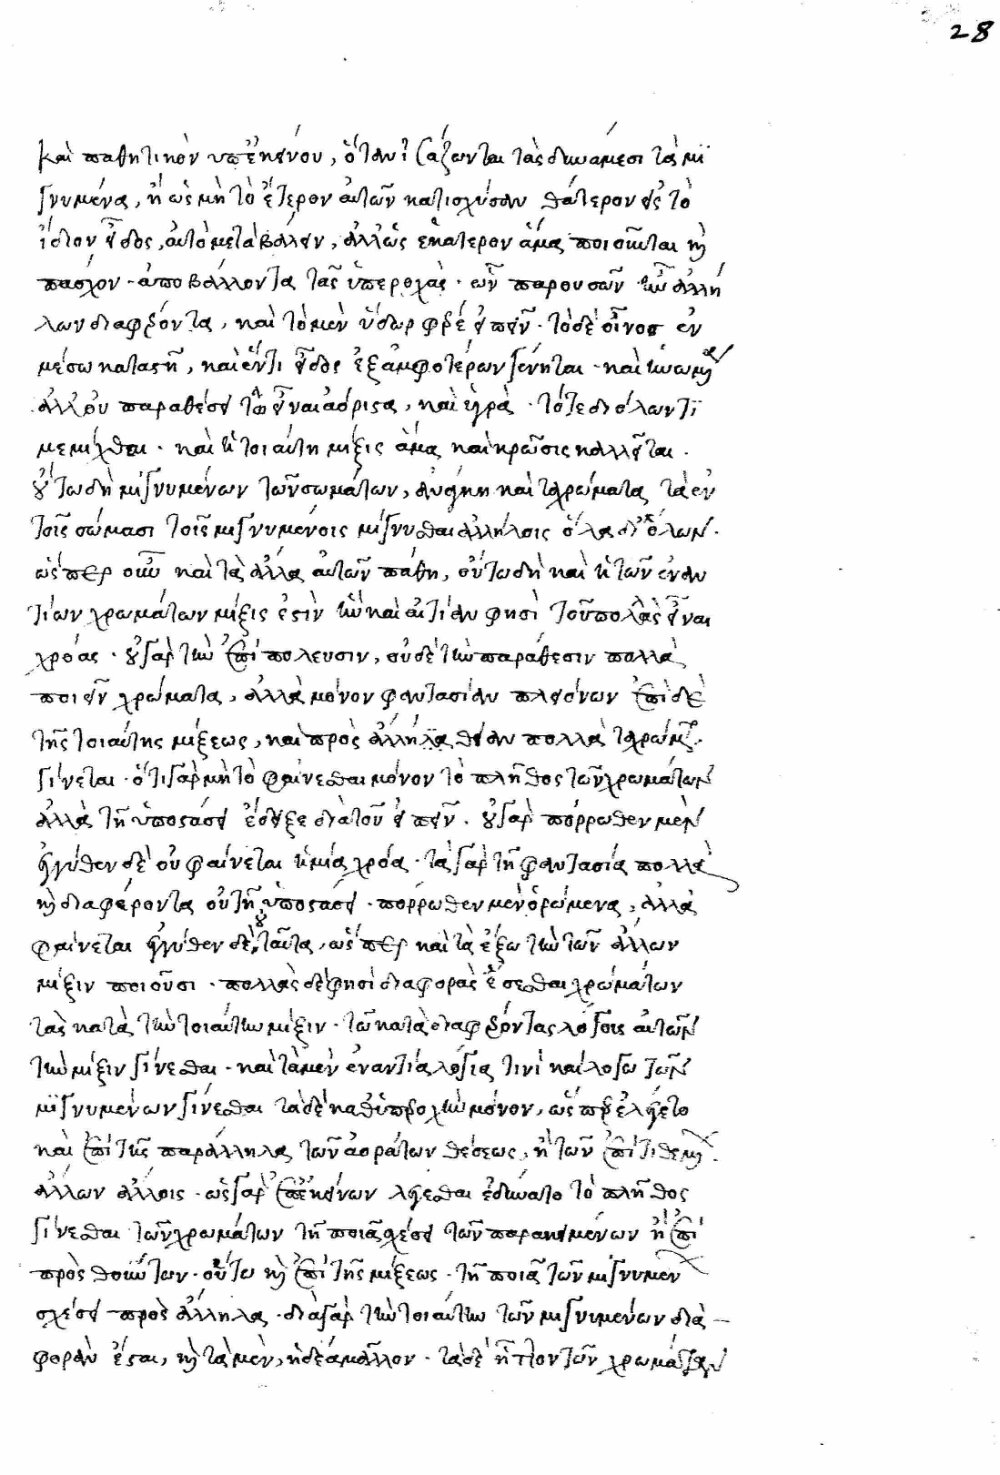 28
καὶ παθητικὸν ὑπ' ἐκείνου, ὅταν ἰσάζωνται τὰς δυνάμεσι τὰ μι
γνυμένα, ἢ ὡς μὴ τὸ ἕτερον αὐτῶν κατισχύσαν θάτερον εἰς τὸ
ἴδιον εἶδος, αὐτὸ μεταβάλειν, ἀλλ' ὡς ἑκάτερον ἅμα ποιοῦνται καὶ
πάσχον· ἀποβάλλοντα τὰς ὑπεροχάς· ὧν παρουσῶν τῶν ἀλλή
λων διαφέροντα, καὶ τὸ μὲν ὕδωρ φέρε εἰπεῖν· τὸ δὲ οἶνος ἐν
μέσω καταστῆ, καὶ ἕν τι εἶδος ἐξ ἀμφοτέρων γένηται· καὶ
ἀλλ' οὐ παραθέσει τῶ εἶναι ἀόριστα, καὶ ὑγρά· τότε δι' ὅλων τῒ
μεμίχθαι· καὶ ἡ τοιαύτη μίξις ἅμα καὶ κρᾶσις καλεῖται.
οὕτω δὴ μιγνυμένων τῶν σωμάτων, ἀνάγκη καὶ τὰ χρώματα τὰ ἐν
τοῖς σώμασι τοῖς μιγνυμένοις μίγνυσθαι ἀλλήλοις ὅλα δι' ὅλων.
ὥσπερ οὖν καὶ τὰ ἄλλα αὐτῶν πάθη, οὕτω δὴ καὶ ἡ τῶν ἐναν
τίων χρωμάτων μίξις ἐστὶν ἣν καὶ αἰτίαν φησὶ τοῦ πολλὰς εἶναι
χρόας· οὐ γὰρ τὴν ἐπιπόλευσιν, οὐδὲ τὴν παράθεσιν πολλὰ
ποιεῖν χρώματα, ἀλλὰ μόνον φαντασίαν πλειόνων ἐπὶ δὲ
τῆς τοιαύτης μίξεως, καὶ πρὸς ἄλληλα θείαν πολλὰ τὰ χρώματα
γίνεται· ὅτι γὰρ μὴ τὸ φαίνεσθαι μόνον τὸ πλῆθος τῶν χρωμάτων
ἀλλὰ τῆ ὑποστάσει ἔδειξε διὰ τοῦ εἰπεῖν. οὐ γὰρ πόρρωθεν μὲν
ἐγγύθεν δὲ οὐ φαίνεται ἡ μία χρόα· τὰ γὰρ τῆ φαντασία πολλὰ
καὶ διαφέροντα οὐ τῆ ὑποστάσει· πόρρωθεν μὲν ὁρώμενα, ἀλλὰ
φαίνεται ἐγγύθεν δὲ οὐ ταῦτα, ὥσπερ καὶ τὰ ἔξω τὴν τῶν ἄλλων
μίξιν ποιοῦσι· πολλὰς δέ φησι διαφορὰς ἔσεσθαι χρωμάτων
τὰς κατὰ τὴν τοιαύτην μίξιν· τῶ κατὰ διαφέροντας λόγους αὐτῶν
τὴν μίξιν γίνεσθαι· καὶ τὰ μὲν ἐν ἀναλογίας τινὶ καὶ λόγω τῶν
μιγνυμένων γίνεσθαι τὰ δὲ καθ' ὑπεροχὴν μόνον, ὥσπερ ἐλέγετο
καὶ ἐπὶ τῆς παράλληλα τῶν ἀοράτων θέσεως, ἢ τῶν ἐπιτιθεμένων
ἄλλων ἄλλοις· ὡς γὰρ ἐπ' ἐκείνων λέγεσθαι ἐδύνατο τὸ πλῆθος
γίνεσθαι τῶν χρωμάτων τῆ ποιᾶ σχέσει τῶν παρακειμένων ἢ ἐπι
προσθούντων· οὕτω καὶ ἐπὶ τῆς μίξεως· τῆ ποιᾶ τῶν μιγνυμένων
σχέσει πρὸς ἄλληλα· διὰ γὰρ τὴν τοιαύτην τῶν μιγνυμένων δια
φορὰν ἔσται, καὶ τὰ μὲν, ἡδέα μᾶλλον· τὰ δὲ ἧττον τῶν χρωμάτων